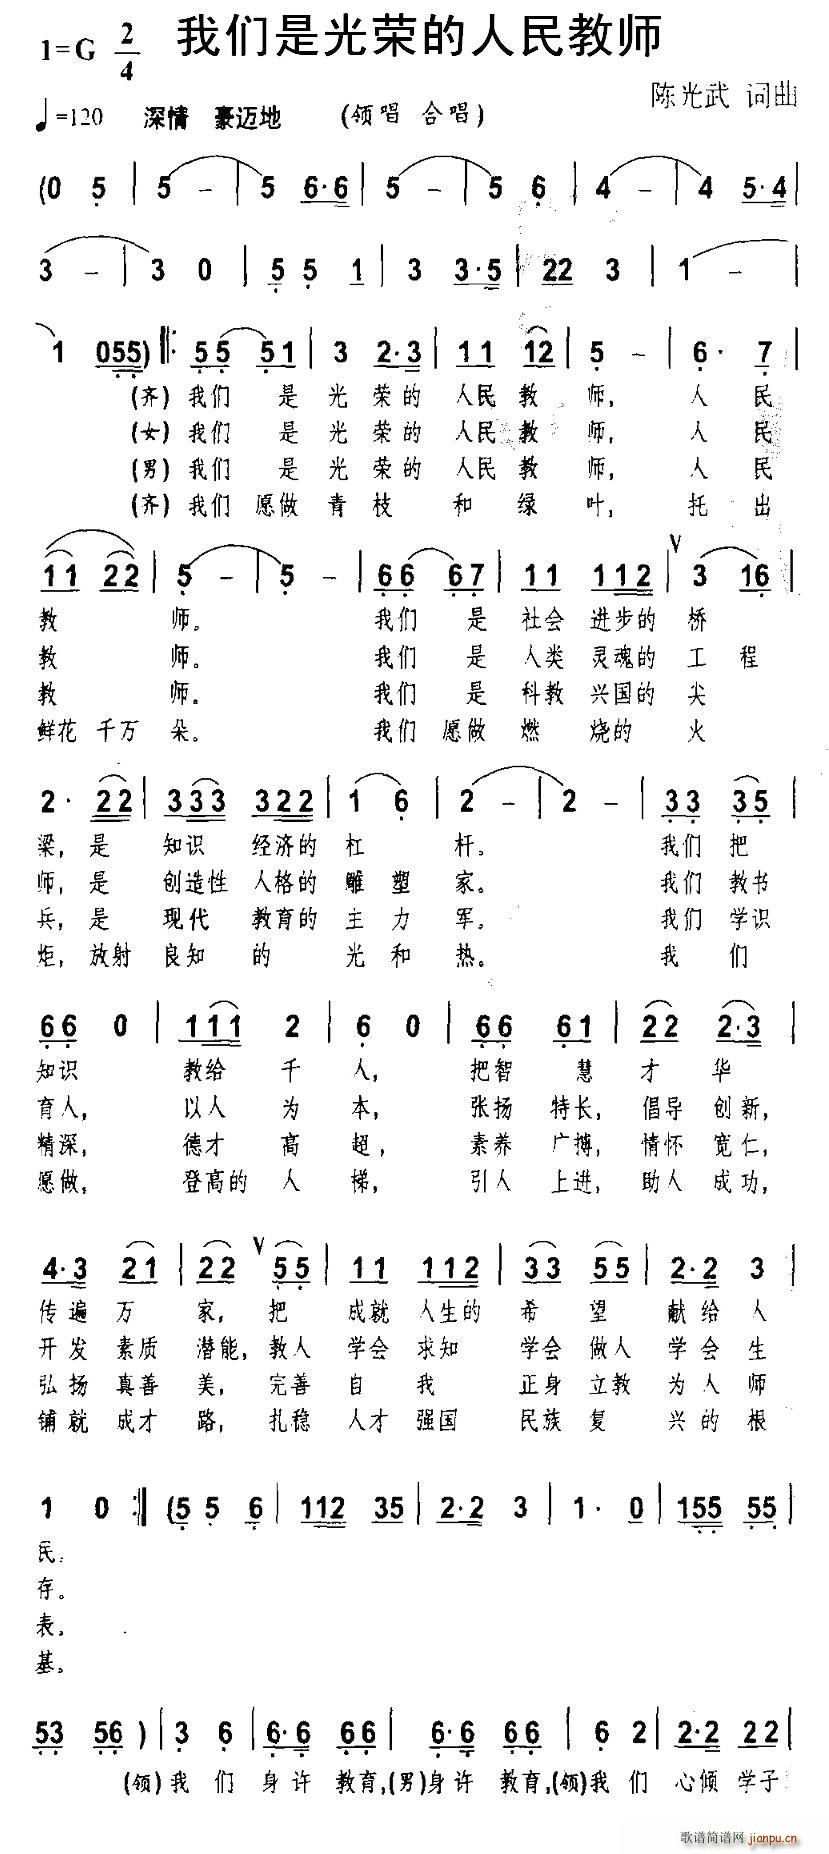 我们是光荣的人民教师
1=G 2/4
陈光武 词曲
♩=120 深情 豪迈地 (领唱 合唱)
(0 5 | 5 - | 5 6·6 | 5 - | 5 6 | 4 - | 4 5·4 |
3 - | 3 0 | 5 5 1 | 3 3·5 | 22 3 | 1 - |
1 055) |: 55 51 | 3 2·3 | 11 12 | 5 - | 6· 7 |
(齐)我们 是 光 荣的 人民 教 师, 人 民
(女)我们 是 光 荣的 人民 教 师, 人 民
(男)我们 是 光 荣的 人民 教 师, 人 民
(齐)我们 愿做 青 枝 和 绿 叶, 托 出
11 22 | 5 - | 5 - | 66 67 | 11 112 | V 3 16 |
教 师。 我们 是 社会 进步的 桥
教 师。 我们 是 人类 灵魂的 工 程
教 师。 我们 是 科教 兴国的 尖
鲜花 千万 朵。 我们 愿做 燃 烧的 火
2· 22 | 333 322 | 1 6 | 2 - | 2 - | 33 35 |
梁, 是 知识 经济的 杠 杆。 我们 把
师, 是 创造性 人格的 雕 塑 家。 我们 教书
兵, 是 现代 教育的 主 力 军。 我们 学识
炬, 放射 良知 的 光 和 热。 我 们
66 0 | 111 2 | 6 0 | 66 61 | 22 2·3 |
知识 教给 千 人, 把智 慧 才 华
育人, 以人 为 本, 张扬 特长, 倡导 创新,
精深, 德才 高 超, 素养 广搏, 情怀 宽仁,
愿做, 登高的 人 梯, 引人 上进, 助人 成功,
4·3 21 | 22 V 55 | 11 112 | 33 55 | 2·2 3 |
传遍 万 家, 把 成就 人生的 希 望 献给 人
开发 素质 潜能, 教人 学会 求知 学会 做人 学会 生
弘扬 真善 美, 完善 自 我 正身 立教 为人 师
铺就 成才 路, 扎稳 人才 强国 民族 复 兴的 根
1 0 :| (5 5 6 | 112 35 | 2·2 3 | 1· 0 | 155 55 |
民.
存。
表。
基。
53 56 ) | 3 6 | 6·6 66 | 6·6 66 | 6 2 | 2·2 22 |
(领)我 们 身许 教育,(男)身许 教育,(领)我 们 心倾 学子
歌谱简谱网 jianpu.cn